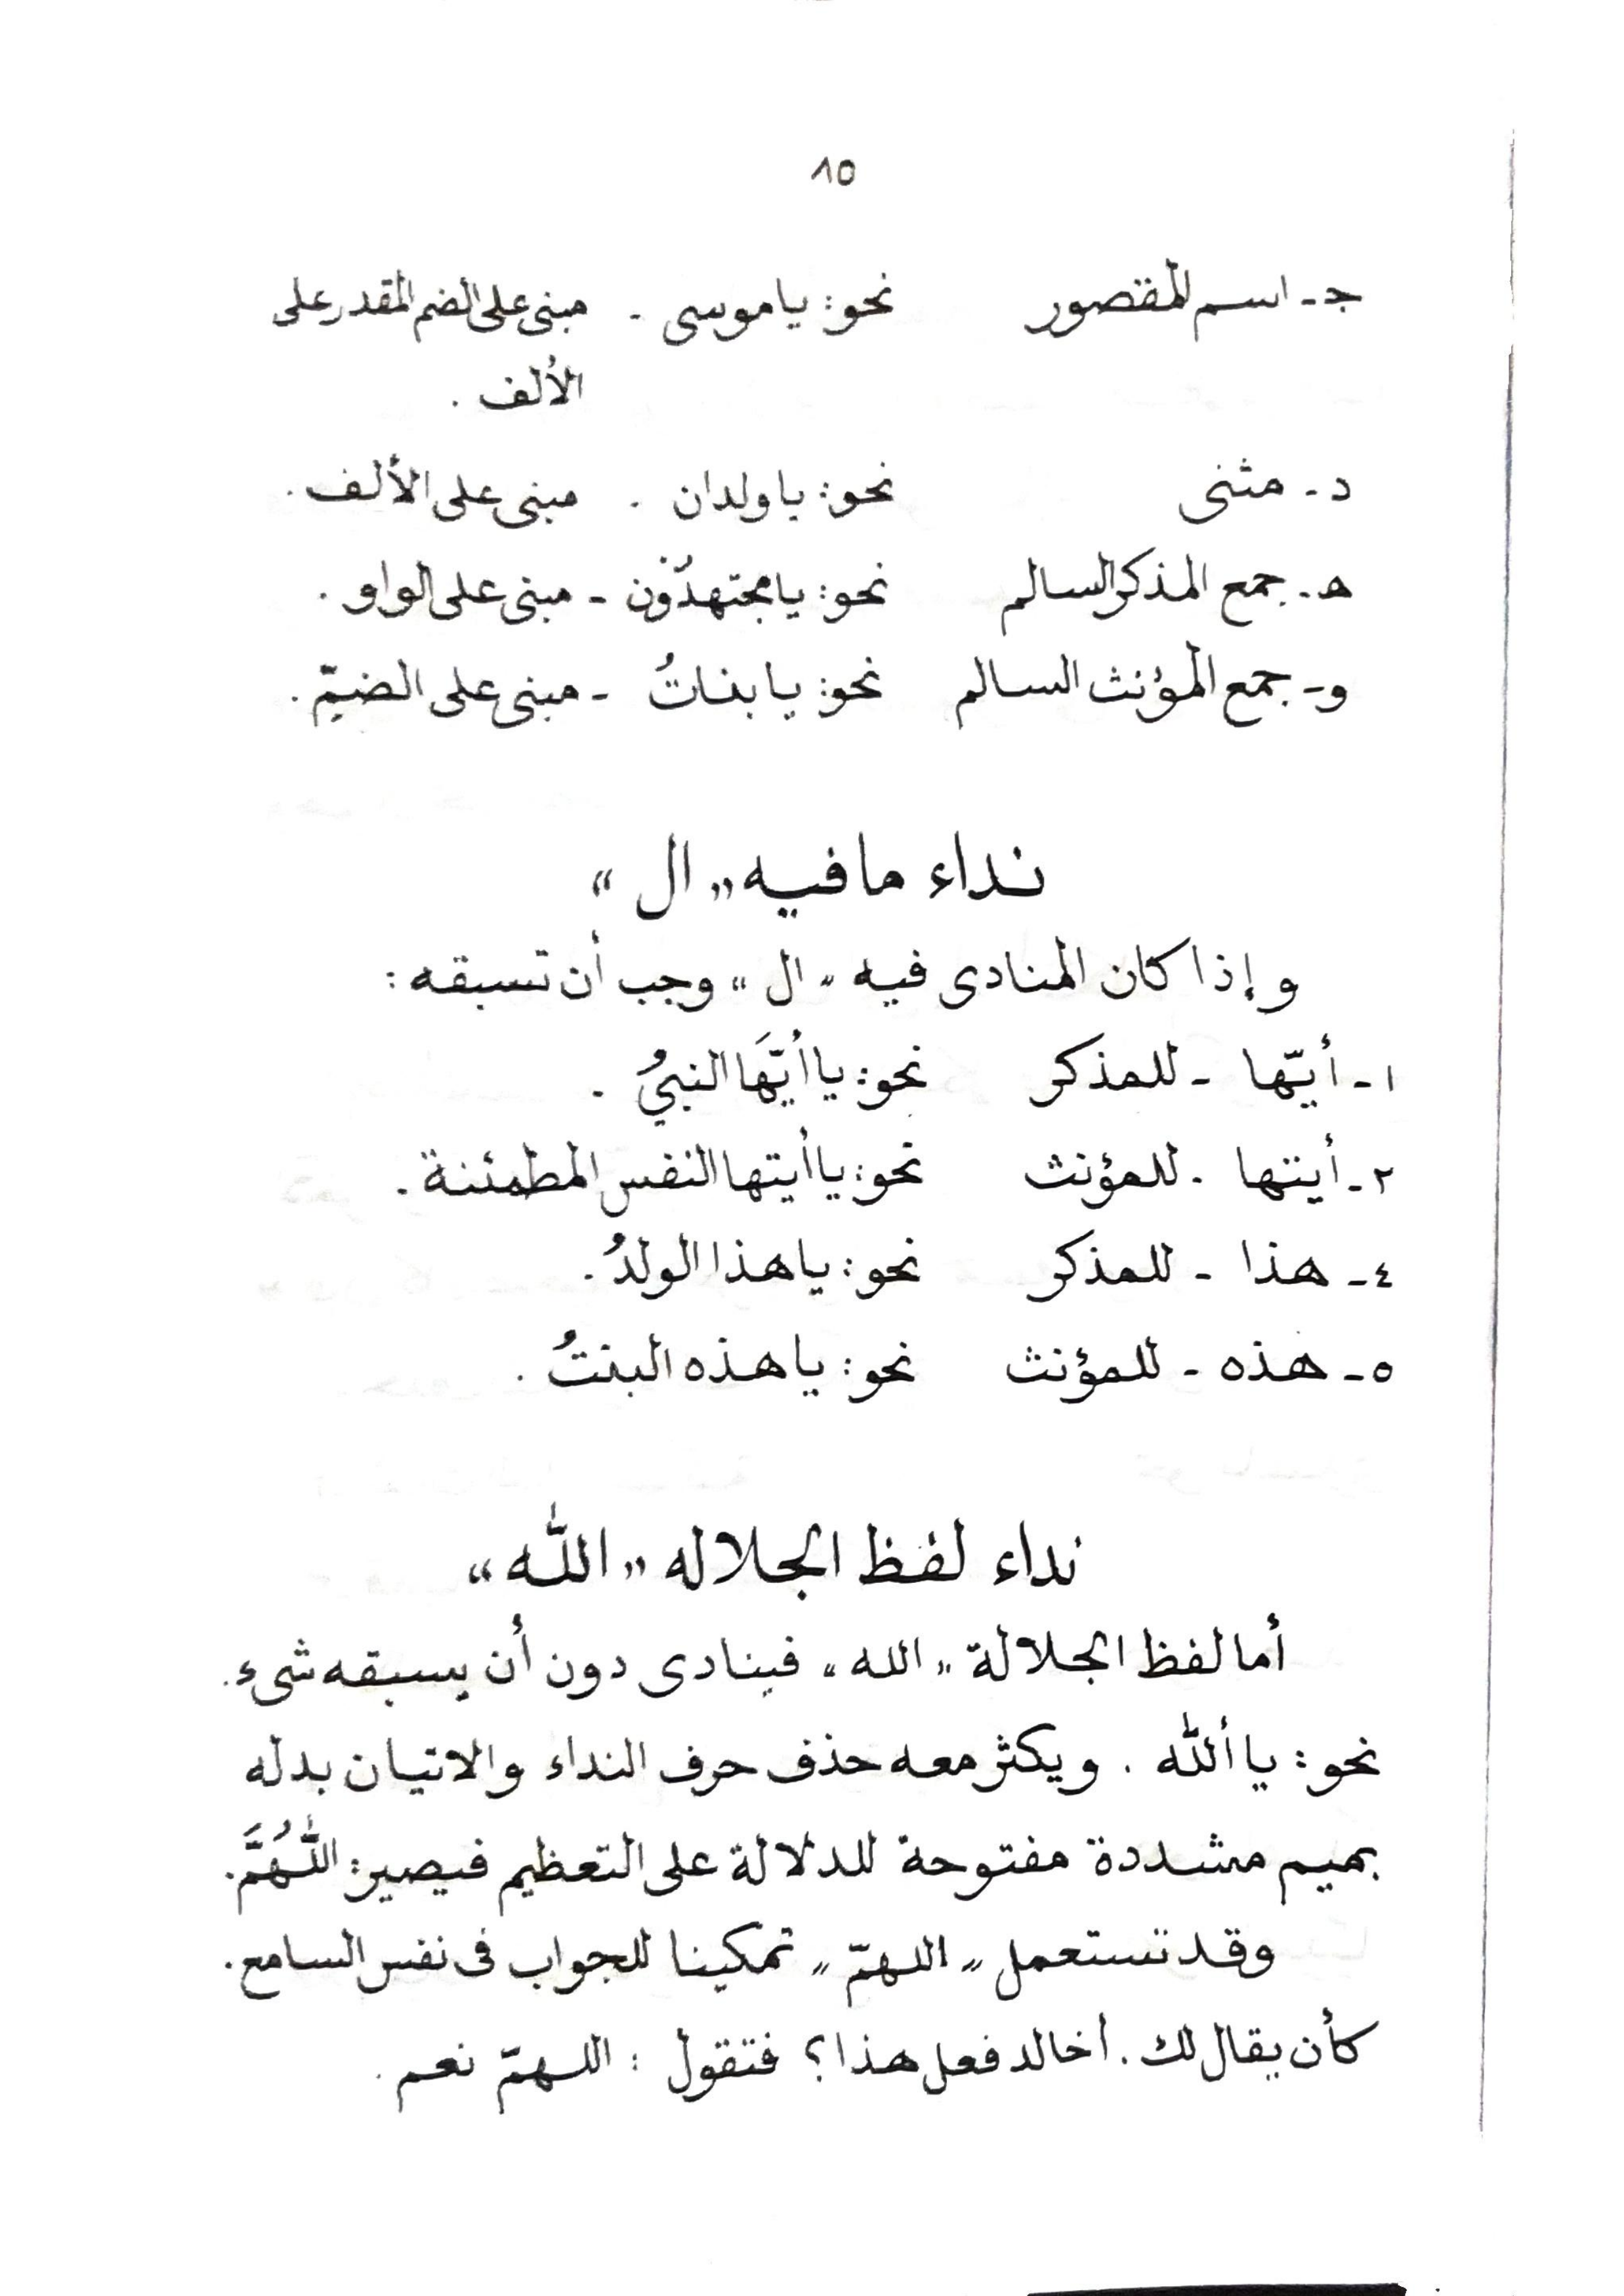 ٨٥
جـ - اسم المقصور نحو: ياموسى - مبنى على الضم المقدر على
الألف .
د - مثنى نحو: ياولدان . مبنى على الألف .
هـ - جمع المذكر السالم نحو: يامجتهدُون - مبنى على الواو .
و - جمع المؤنث السالم نحو: يابناتُ - مبنى على الضمّ .
نداء مافيه „ ال “
وإذا كان المنادى فيه „ ال “ وجب أن تسبقه :
١ - أيّها - للمذكر نحو: ياأيّهَا النبيُ .
٢ - أيتها . للمؤنث نحو: ياأيتها النفس المطمئنة .
٤ - هذا - للمذكر نحو: ياهذا الولدُ .
٥ - هذه - للمؤنث نحو: ياهذه البنتُ .
نداء لفظ الجلاله „ اللّٰه “
أما لفظ الجلالة „ الله „ فينادى دون أن يسبقه شىء .
نحو: ياأللّٰه . ويكثر معه حذف حرف النداء والاتيان بدله
بميم مشددة مفتوحة للدلالة على التعظيم فيصير: اللّٰهُمَّ .
وقد تستعمل „ اللهمّ „ تمكينا للجواب فى نفس السامع .
كأن يقال لك . أخالد فعل هذا؟ فتقول : اللهمّ نعم .